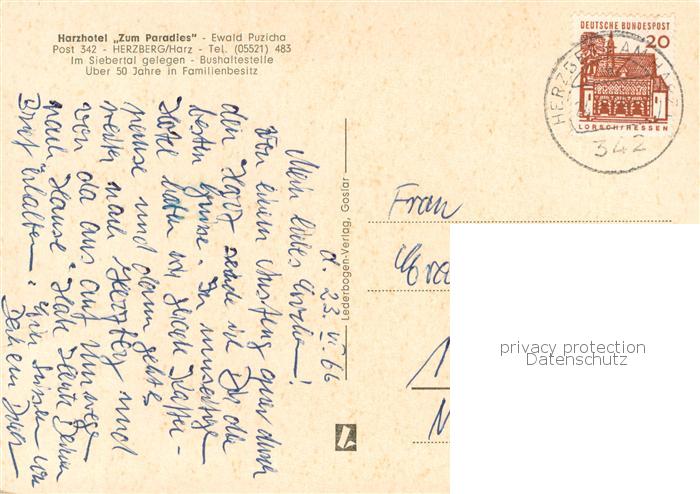 Harzhotel „Zum Paradies" - Ewald Puzicha
Post 342 - HERZBERG/Harz - Tel. (05521) 483
Im Siebertal gelegen - Bushaltestelle
Über 50 Jahre in Familienbesitz
DEUTSCHE BUNDESPOST
20
LORSCH/HESSEN
HERZBERG AM HARZ
342
d. 23. VI. 66
Mein liebes
Von einem quer durch
den Harz sende ich Dir die
besten Grüsse. In
Hotel
pause und dann geht's
weiter nach Herzberg und
von da aus auf Umwegen
nach Hause. Habe heute Deinen
Brief erhalten. von
Deinem
Lederbogen-Verlag, Goslar
Frau
privacy protection
Datenschutz